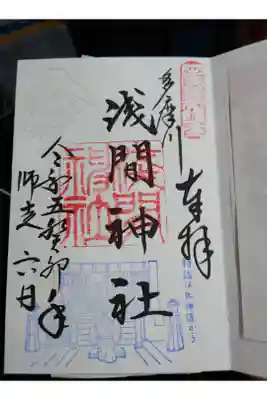 奉拝
多摩川
浅間神社
令和五癸卯年
師走 六日
浅間神社